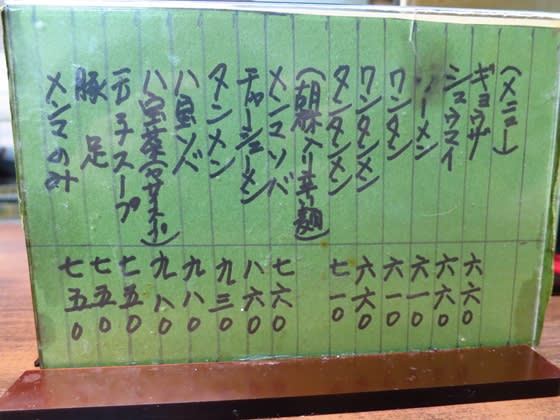 (メニュー)
ギョウザ 六六0
シュウマイ 六六0
ーメン 六一0
ワンタン 六一0
ワンタンメン 六六0
タンタンメン 七一0
(胡麻入り辛い麺)
メンマソバ 七六0
チャーシューメン 八六0
タンメン 九三0
八宝ソバ 九八0
八宝菜 九八0
玉子スープ 七五0
豚足 七五0
メンマのみ 七五0